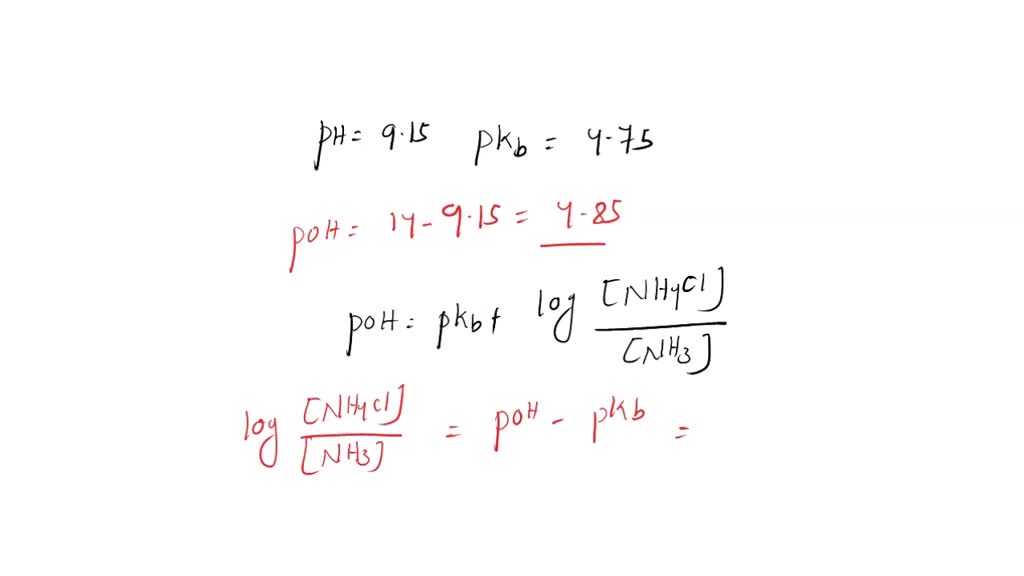 pH = 9.15 pkb = 4.75
pOH = 14 - 9.15 = 4.85
pOH = pkb + log [NH4Cl] / [NH3]
log [NH4Cl] / [NH3] = pOH - pkb =